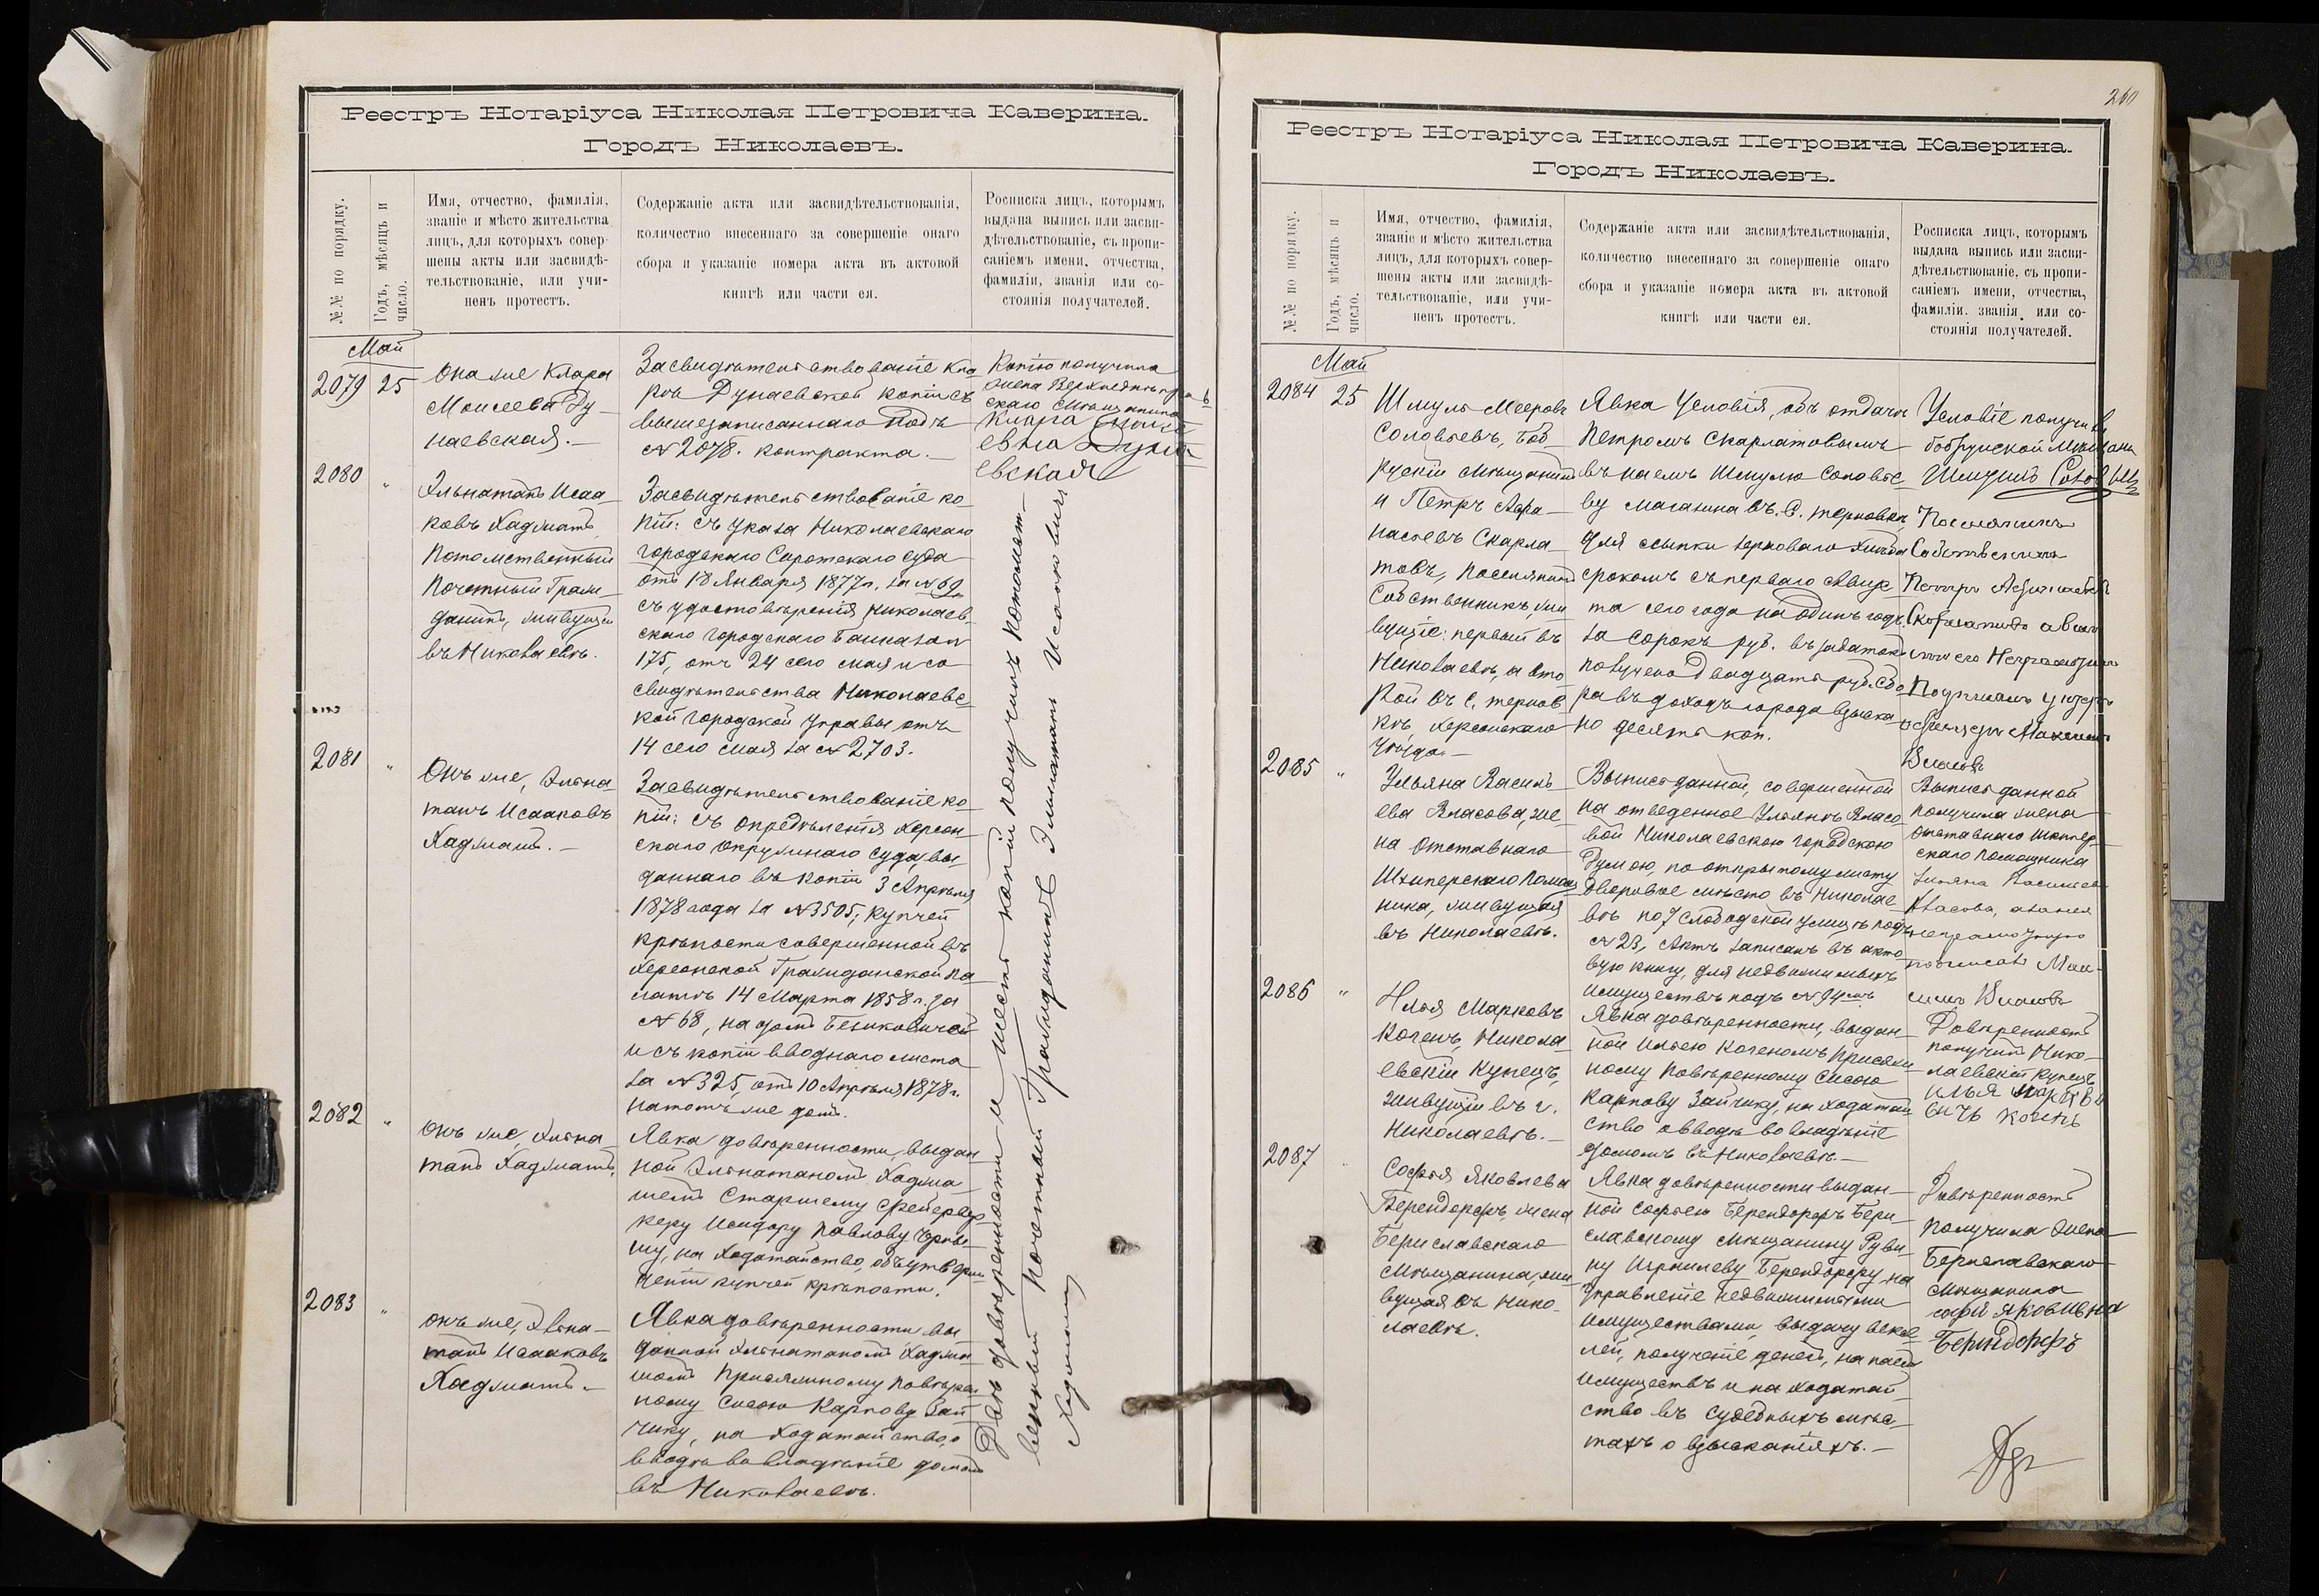 Реестръ Нотаріуса Николая Петровича Каверина.
Городъ Николаевъ.
№№ по порядку.
Годъ, мѣсяцъ и
число.
Имя, отчество, фамилія,
званіе и мѣсто жительства
лицъ, для которыхъ совер-
шены акты или засвидѣ-
тельствованіе, или учи-
ненъ протестъ.
Содержаніе акта или засвидѣтельствованія,
количество внесеннаго за совершеніе онаго
сбора и указаніе номера акта въ актовой
книгѣ или части ея.
Росписка лицъ, которымъ
выдана выпись или засви-
дѣтельствованіе, съ пропи-
саніемъ имени, отчества,
фамиліи, званія или со-
стоянія получателей.
Май
2079 25
Она же Клара
Моисеева Ду-
наевская.-
Засвидѣтельствованіе Кла
рѣ Дунаевской копіи съ
вышезаписаннаго подъ
№ 2078. контракта.-
Копію получила
жена Верхнеднѣпров
скаго Мѣщанина
Клара
евна Дуна
евская
2080 "
Эльнатанъ Исаа-
ковъ Хаджатъ
Потомственный
Почетный Граж-
данинъ, живущій
въ Николаевѣ.
Засвидѣтельствованіе ко-
піи: съ указа Николаевскаго
городскаго Сиротскаго Суда
отъ 18 Января 1877 г. за № 69,
съ удостовѣренія Николаев-
скаго городскаго Банка за №
175, отъ 24 сего мая и со
свидѣтельства Николаевс-
кой городской Управы отъ
14 сего мая за № 2703.
2081 "
Онъ же, Эльна-
танъ Исааковъ
Хаджатъ.-
Засвидѣтельствованіе ко-
піи: съ опредѣленія Херсон-
скаго Окружнаго Суда, вы-
даннаго въ копіи 3 Апрѣля
1878 года за № 3505, купчей
крѣпости совершенной въ
Херсонской Гражданской Па
латѣ 14 Марта 1858 г. за
№ 68, на домъ
и съ копіи вводнаго листа
за № 325, отъ 10 Апрѣля 1878 г.
на тотъ же домъ.
2082 "
Онъ же, Эльна-
танъ Хаджатъ.
Явка довѣренности, выдан
ной Эльнатаномъ Хаджа-
темъ Старшему Фейервер
керу Исидору Павлову
на ходатайство, объ утверж-
деніи купчей крѣпости.
2083 "
онъ же, Эльна-
танъ Исааковъ
Хаджатъ.-
Явка довѣренности вы
данной Эльнатаномъ Хаджа
томъ Присяжному Повѣрен
ному Сысою Карпову Зай
чику, на ходатайство, о
вводѣ во владѣніе домомъ
въ Николаевѣ.
Двѣ довѣренности и шесть копій получилъ потомст-
венный почетный Гражданинъ Эльнатанъ Исаковичъ
Хаджатъ
260
Реестръ Нотаріуса Николая Петровича Каверина.
Городъ Николаевъ.
№№ по порядку.
Годъ, мѣсяцъ и
число.
Имя, отчество, фамилія,
званіе и мѣсто жительства
лицъ, для которыхъ совер-
шены акты или засвидѣ-
тельствованіе, или учи-
ненъ протестъ.
Содержаніе акта или засвидѣтельствованія,
количество внесеннаго за совершеніе онаго
сбора и указаніе номера акта въ актовой
книгѣ или части ея.
Росписка лицъ, которымъ
выдана выпись или засви-
дѣтельствованіе, съ пропи-
саніемъ имени, отчества,
фамиліи. званія или со-
стоянія получателей.
Май
2084 25
Шмуль Мееровъ
Соловьевъ, Боб-
рускій Мѣщанинъ
и Петръ Афа-
насьевъ Скарла-
товъ, поселянинъ
Собственникъ, жи
вущіе: первый въ
Николаевѣ, а вто
рой въ с. Тернов-
кѣ, Херсонскаго
Уѣзда.-
Явка Условія, объ отдачѣ
Петромъ Скарлатовымъ-
въ наемъ Шмулю Соловье-
ву магазина въ С. Терновкѣ,
для ссыпки зерноваго хлѣба
срокомъ съ перваго Авгус
та сего года на одинъ годъ
за сорокъ руб. въ задатокъ
получено двадцать руб. Сбо
ра въ доходъ города взыска
но десять коп.
Условіе получилъ
бобруйской мѣщани
Шмуль
Поселянинъ
Собственникъ
Петръ
Скарлатовъ а вмѣ
сто его Неграмотнаго
Подписалъ Унтеръ
офицеръ
Власовъ
2085 "
Ульяна Василь-
ева Власова, же-
на отставнаго
Шхиперскаго помощ
ника, живущая
въ Николаевѣ.
Выпись данной, совершенной
на отведенное Ульянѣ Власо
вой Николаевскою городскою
Думою, по открытому листу
дворовое мѣсто въ Николае-
вѣ по 7 Слободской улицѣ подъ
№ 23, Актъ записанъ въ акто
вую книгу, для недвижимыхъ
имуществъ подъ № 94 мъ
Выпись данной
получила жена
отставнаго шхипер-
скаго помощника
Ульяна Васильева
Власова, а за нея
неграмотную
подписалъ Мак-
симъ Власовъ
2086 "
Илья Марковъ
Когенъ, Никола-
евскій Купецъ,
живущій въ г.
Николаевѣ.-
Явка довѣренности, выдан-
ной Ильею Когеномъ Присяж-
ному Повѣренному Сысою
Карпову Зайчику, на ходатай
ство о вводѣ во владѣніе
домомъ въ Николаевѣ.-
Довѣренность
получилъ Нико-
лаевскій Купецъ
Илья Марков
ичъ Когенъ
2087 "
Софья Яковлева
Берендорфъ, жена
Бериславскаго
Мѣщанина, жи
вущая въ Нико-
лаевѣ.
Явка довѣренности выдан-
ной Софьею Берендорфъ Бери-
славскому Мѣщанину Руви-
ну Израилеву Берендорфу, на
Управленіе недвижимыми
имуществами, выдачу вексе-
лей, полученіе денегъ, на наемъ
имуществъ и на ходатай-
ство въ судебныхъ мѣс-
тахъ о взысканіяхъ.-
Довѣренность
получила жена
Бериславскаго
мѣщанина
софія яковлевна
Берендорфъ